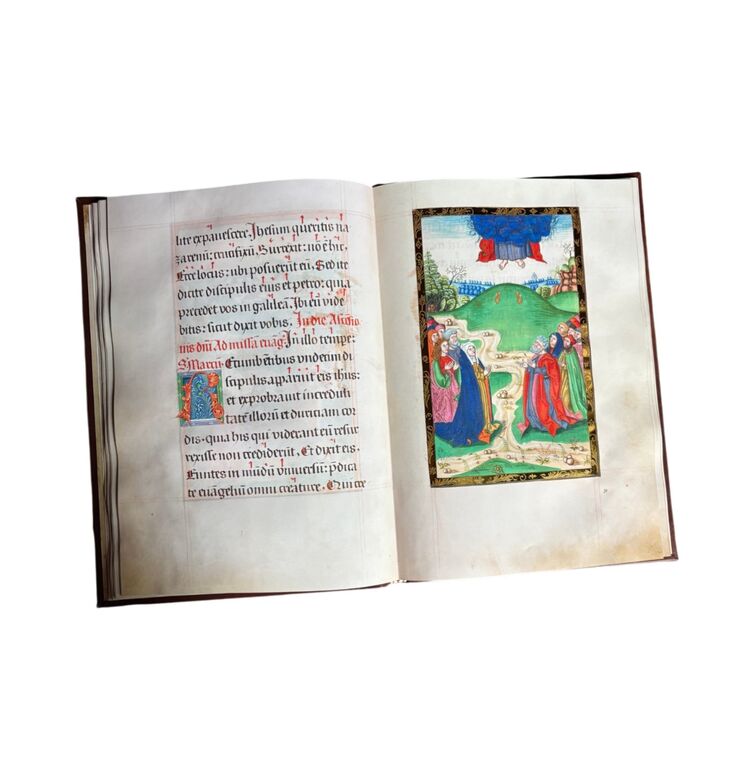 lite expauescere. Ihesum queritis na
zarenũ: crucifixũ. Surrexit: nõ ẽ hic,
Ecce locus: ubi posuerũt eũ. Sed ite
dicite discipulis eius et petro: quia
precedet vos in galileam. Ibi eũ vide
bitis: sicut dixit vobis. In die Ascẽsio
nis dñi Ad missã euãg. In illo tempe:
S. Marcũ. Recumbẽtibus undecim di
scipulis apparuit eis ihus:
et exprobrauit incredũli
tatẽ illorũ et duriciam cor
dis. quia his qui viderant eũ resur
rexisse non crediderũt, Et dixit eis.
Euntes in mũdũ vniuersũ: p̃dica
te euãgeliũ omni creature. Qui cre